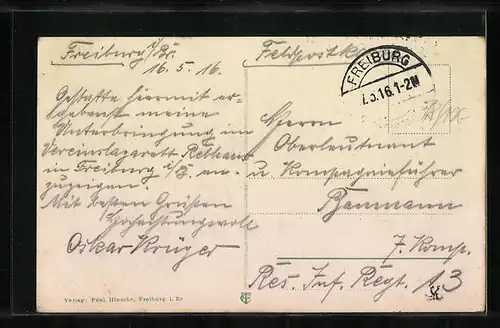 Freiburg i/Br.
16.5.16.
Gestatte hiermit er-
gebenst meine
Unterbringung im
Vereinslazarett Rebhaus
in Freiburg i/B. an-
zuzeigen.
Mit besten Grüßen
Hochachtungsvoll
Oskar Krüger
Feldpostk
FREIBURG
.5.16.1-2N
Herrn
Oberleutnant
u. Kompagnieführer
Baumann
7. Komp.
Res. Inf. Regt. 13
Verlag: Paul Hinsche, Freiburg i. Br